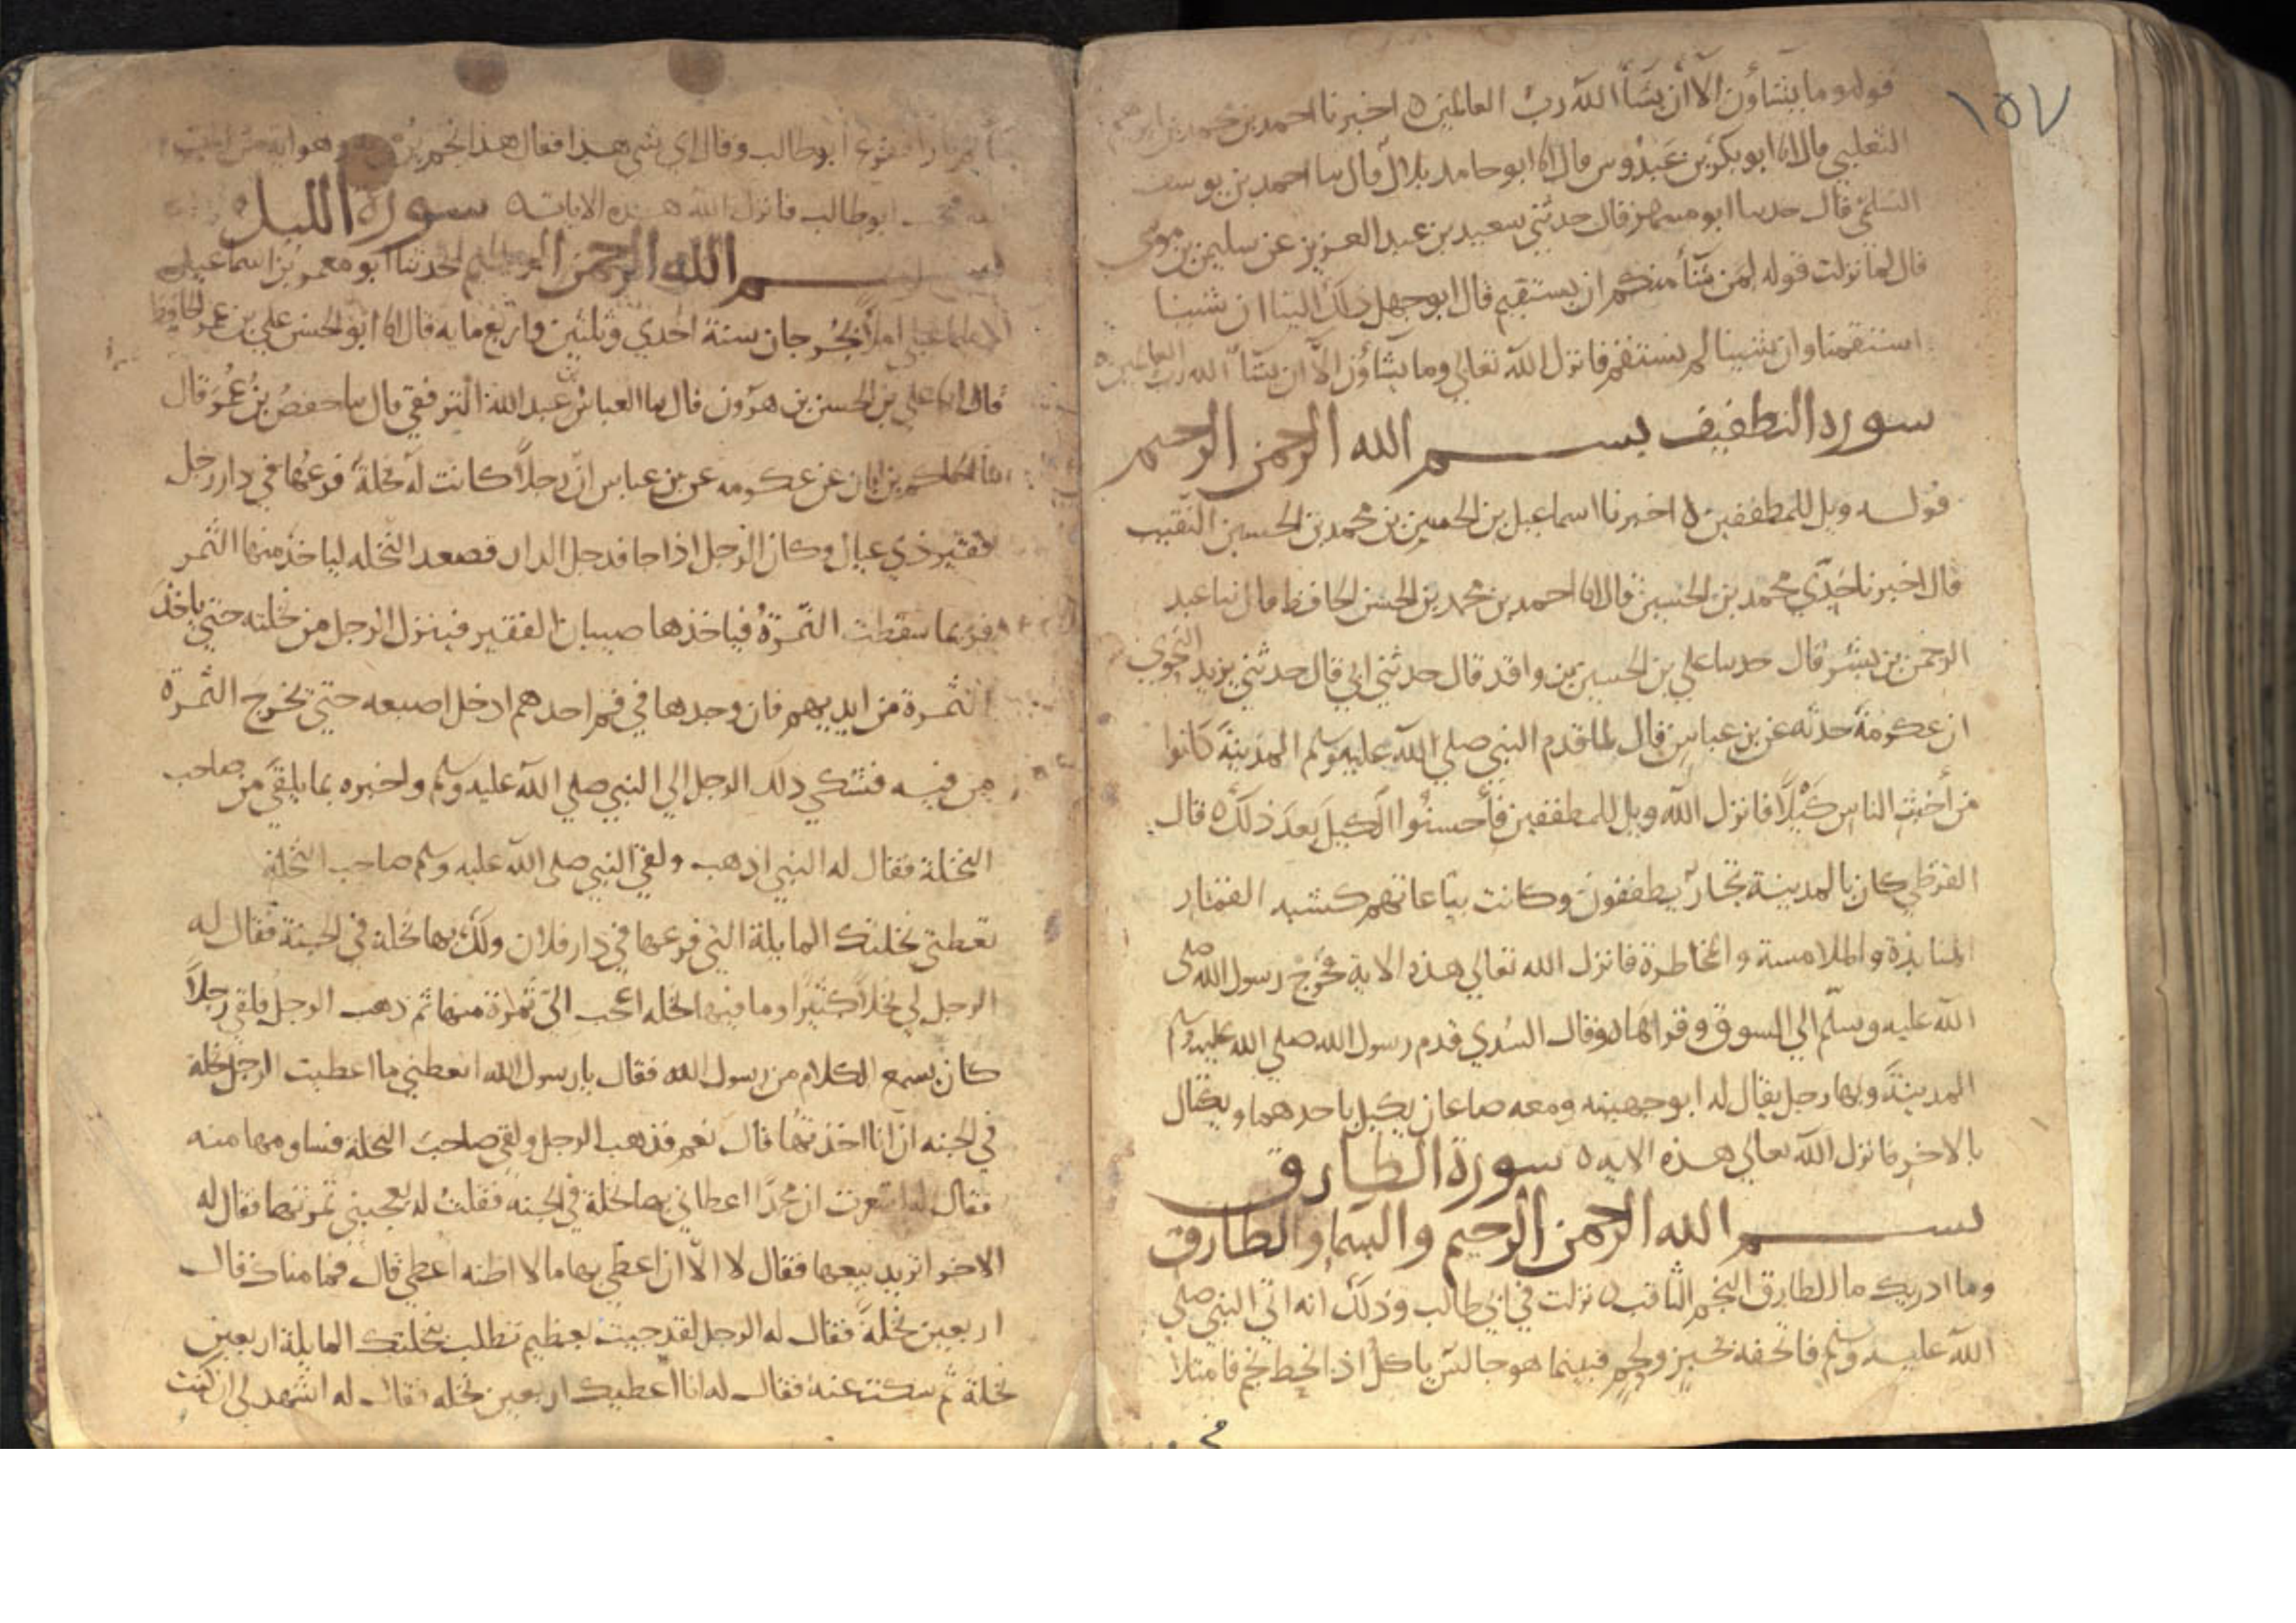 ١٥٧
قوله وما يشاؤن الا أن يشأ الله رب العالمين ه اخبرنا احمد بن محمد بن ابرهيم
الثعلبي قال انا ابو بكر بن عبدوس قال انا ابو حامد بلال قال سا احمد بن يوسف
السلمي قال حدسا ابو مسهر قال حدثني سعيد بن عبد العزيز عن سليمن بن موسى
قال لما نزلت قوله لمن شأ منكم ان يستقيم قال ابو جهل ذلك الينا ان شينا
استقمنا وان شينا لم نستقم فانزل الله تعالي وما يشاؤن الا ان يشأ الله رب العالمين ه
سورة التطفيف بسم الله الرحمن الرحيم
قوله ويل للمطففين ه اخبرنا اسماعيل بن الحسين بن محمد بن الحسين النقيب
قال اخبرنا جدي محمد بن الحسين قال انا احمد بن محمد بن الحسن الحافظ قال ثنا عبد
الرحمن بن بشر قال حدسا علي بن الحسين بن واقد قال حدثني ابي قال حدثني يزيد النحوي
ان عكرمة حدثه عن بن عباس قال لما قدم النبي صلي الله عليه وسلم المدينة كانوا
من أخبث الناس كيلا فانزل الله ويل للمطففين فأحسنوا الكيل بعد ذلك ه قال
القرظي كان بالمدينة تجار يطففون وكانت بياعاتهم كشبه القمار
المنابذة والملامسة والمخاطرة فانزل الله تعالي هذه الاية فخرج رسول الله صلى
الله عليه وسلم الي السوق وقراها ه وقال السدي قدم رسول الله صلي الله عليه وسلم
المدينة وبها رجل يقال له ابو جهينه ومعه صاعان يكيل باحدهما ويكتال
بالاخر فانزل الله تعالي هذه الايه ه سورة الطارق
بسم الله الرحمن الرحيم والسما والطارق
وما ادريك ما الطارق النجم الثاقب ه نزلت في ابي طالب وذلك انه اتي النبي صلى
الله عليه وسلم فاتحفه بخبز ولحم فبينما هو جالس ياكل اذ انحط نجم فامتلا
ابو طالب وقال اي شي هذا فقال هذا نجم
ابو طالب فانزل الله هذه الايات ه سورة الليل
بسم الله الرحمن الرحيم حدثنا ابو معمر بن اسماعيل
املأ بجرجان سنة احدي وثلثين واربع مايه قال انا ابو الحسن علي بن عمر الحافظ
قال انا علي بن الحسن بن هرون قال سا العباس بن عبد الله الترقفي قال سا حفص بن عمر قال
سا الحكم بن ابان عن عكرمه عن بن عباس ان رجلا كانت له نخلة فرعها في دار رجل
فقير ذي عيال وكان الرجل اذا جا فدخل الدار فصعد النخله لياخذ منها الثمر
فربما سقطت الثمرة فياخذها صبيان الفقير فينزل الرجل من نخلته حتي ياخذ
الثمرة من ايديهم فان وجدها في فم احدهم ادخل اصبعه حتي تخرج الثمرة
من فيه فشكي دلك الرجل الي النبي صلي الله عليه وسلم واخبره بما يلقي من صاحب
النخلة فقال له النبي اذهب ولقي النبي صلى الله عليه وسلم صاحب النخلة
تعطني نخلتك المايلة التي فرعها في دار فلان ولك بها نخلة في الجنة فقال له
الرجل لي نخلا كثيرا وما فيها نخله اعجب الي ثمرة منها ثم ذهب الرجل فلقي رجلا
كان يسمع الكلام من رسول الله فقال يارسول الله اتعطني ما اعطيت الرجل نخلة
في الجنه ان انا اخذتها قال نعم فذهب الرجل ولقي صاحب النخلة فساومها منه
فقال له اشعرت ان محمدا اعطاني بها نخلة في الجنه فقلت له يعجبني ثمرتها فقال له
الاخر اتريد بيعها فقال لا الا ان اعطي بها ما لا اظنه اعطي قال فما مناك قال
اربعين نخلة فقال له الرجل لقد جيت بعظيم تطلب بنخلتك المايلة اربعين
نخلة ثم سكت عنه فقال له انا اعطيك اربعين نخله فقال له اشهد لي ان كنت